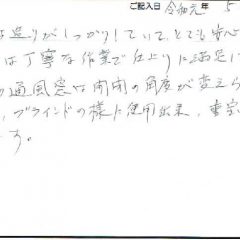 ご記入日 令和元年 5
は造りがしっかりしていて、とても安心
は丁寧な作業で仕上りに満足に
通風窓は開閉の角度が変えら
、ブラインドの様に使用出来、重宝
す。